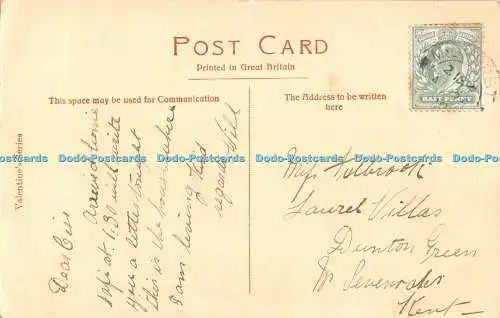 POST CARD
Printed in Great Britain
This space may be used for Communication
The Address to be written
here
HALF PENNY
Valentine's Series
Dear Cis
Arrived home
safe at 1.30 will write
you a letter tonight
this is the house where
I am living Kind
regards Will
Dodo-Postcards Dodo-Postcards Dodo-Postcards Dodo-Postcards Dodo-Postcards
Miss Filbrook
Laurel Villas
Dunton Green
Nr Sevenoaks
Kent